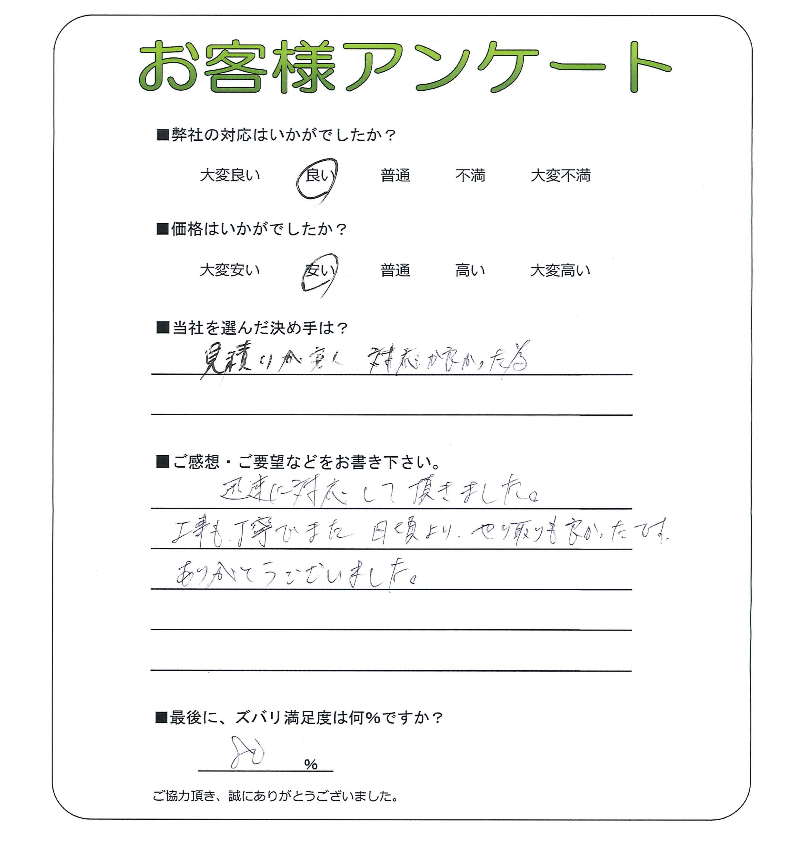 お客様アンケート
■弊社の対応はいかがでしたか？
大変良い 良い 普通 不満 大変不満
■価格はいかがでしたか？
大変安い 安い 普通 高い 大変高い
■当社を選んだ決め手は？
見積りが安く 対応が良かった為
■ご感想・ご要望などをお書き下さい。
迅速に対応して頂きました。
工事も丁寧でまた 日頃より、やり取りも良かったです。
ありがとうございました。
■最後に、ズバリ満足度は何%ですか？
80 %
ご協力頂き、誠にありがとうございました。